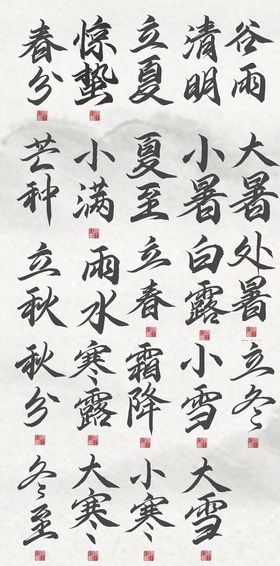 春分 惊蛰 立夏 清明 谷雨
芒种 小满 夏至 小暑 大暑
立秋 雨水 立春 白露 处暑
秋分 寒露 霜降 小雪 立冬
冬至 大寒 小寒 大雪